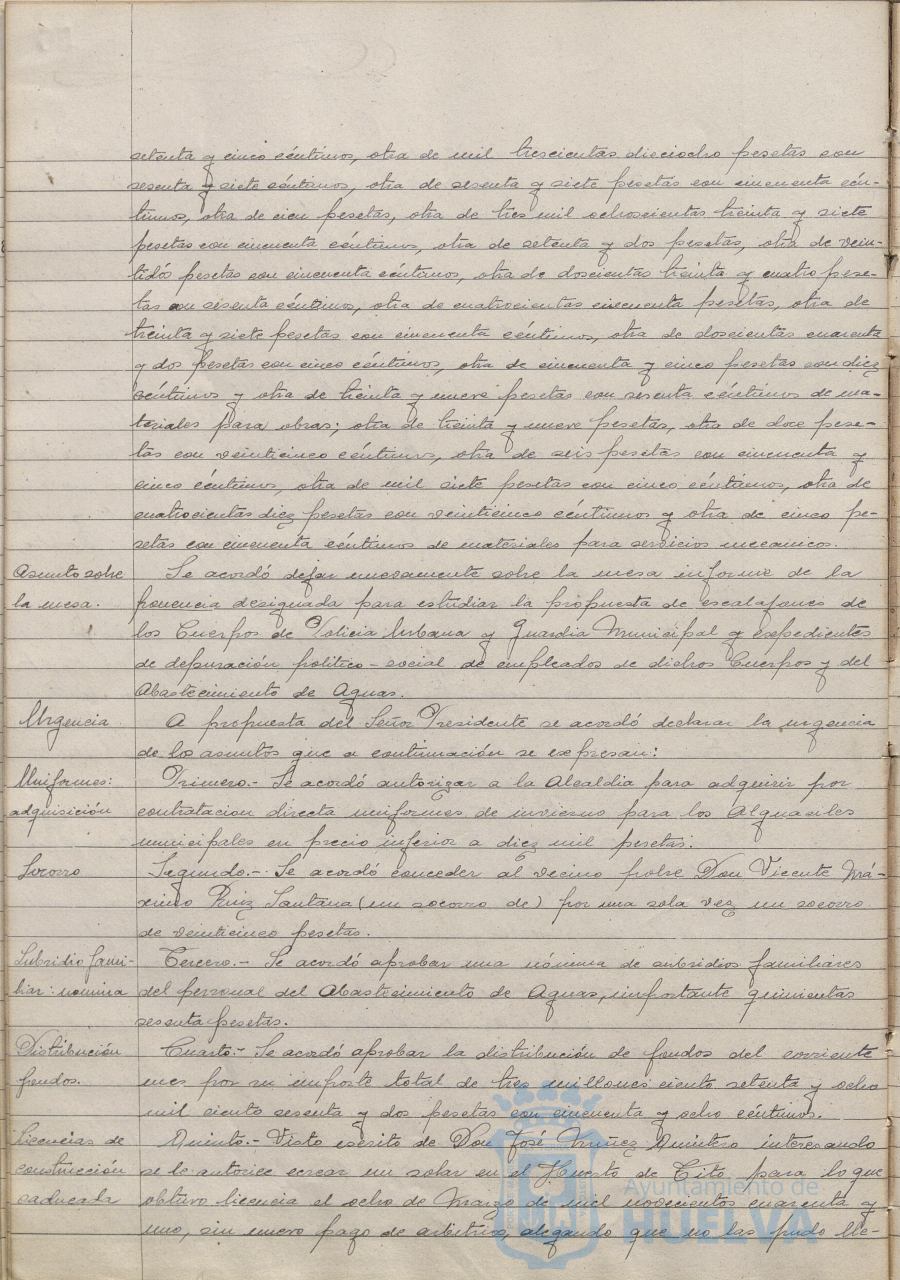 setenta y cinco céntimos, otra de mil trescientas dieciocho pesetas con
sesenta y siete céntimos, otra de sesenta y siete pesetas con cincuenta cén-
timos, otra de cien pesetas, otra de tres mil ochoscientas treinta y siete
pesetas con cincuenta céntimos, otra de setenta y dos pesetas, otra de vein-
tidós pesetas con cincuenta céntimos, otra de doscientas treinta y cuatro pese-
tas con sesenta céntimos, otra de cuatrocientas cincuenta pesetas, otra de
treinta y siete pesetas con cincuenta céntimos, otra de doscientas cuarenta
y dos pesetas con cinco céntimos, otra de cincuenta y cinco pesetas con diez
céntimos y otra de treinta y nueve pesetas con sesenta céntimos de ma-
teriales para obras; otra de treinta y nueve pesetas, otra de doce pese-
tas con veinticinco céntimos, otra de seis pesetas con cincuenta y
cinco céntimos, otra de mil siete pesetas con cinco céntimos, otra de
cuatrocientas diez pesetas con veinticinco céntimos y otra de cinco pe-
setas con cincuenta céntimos de materiales para servicios mecanicos.
Asunto sobre la mesa.
Se acordó dejar nuevamente sobre la mesa informe de la
ponencia designada para estudiar la propuesta de escalafones de
los Cuerpos de Policia Urbana y Guardia Municipal y expedientes
de depuración politico-social de empleados de dichos Cuerpos y del
Abastecimiento de Aguas.
Urgencia
A propuesta del Señor Presidente se acordó declarar la urgencia
de los asuntos que a continuación se expresan:
Uniformes:
adquisición
Primero.- Se acordó autorizar a la Alcaldia para adquirir por
contratacion directa uniformes de invierno para los Alguaciles
municipales en precio inferior a diez mil pesetas.
Socorro
Segundo.- Se acordó conceder al vecino pobre Don Vicente Má-
ximo Ruiz Santana (un socorro de) por una sola vez un socorro
de veinticinco pesetas.
Subsidio fami-
liar: nomina
Tercero.- Se acordó aprobar una nómina de subsidios familiares
del personal del Abastecimiento de Aguas, importante quinientas
sesenta pesetas.
Distribución
fondos.
Cuarto.- Se acordó aprobar la distribución de fondos del corriente
mes por su importe total de tres millones ciento setenta y ocho
mil ciento sesenta y dos pesetas con cincuenta y ocho céntimos.
Licencias de
construcción
caducada
Quinto.- Visto escrito de Don José Muñez Quintero interesando
se le autorice cercar un solar en el Huerto de Tito para lo que
obtuvo licencia el ocho de Marzo de mil novecientos cuarenta y
uno, sin nuevo pago de arbitrios, alegando que no las pudo lle-
Ayuntamiento de
HUELVA